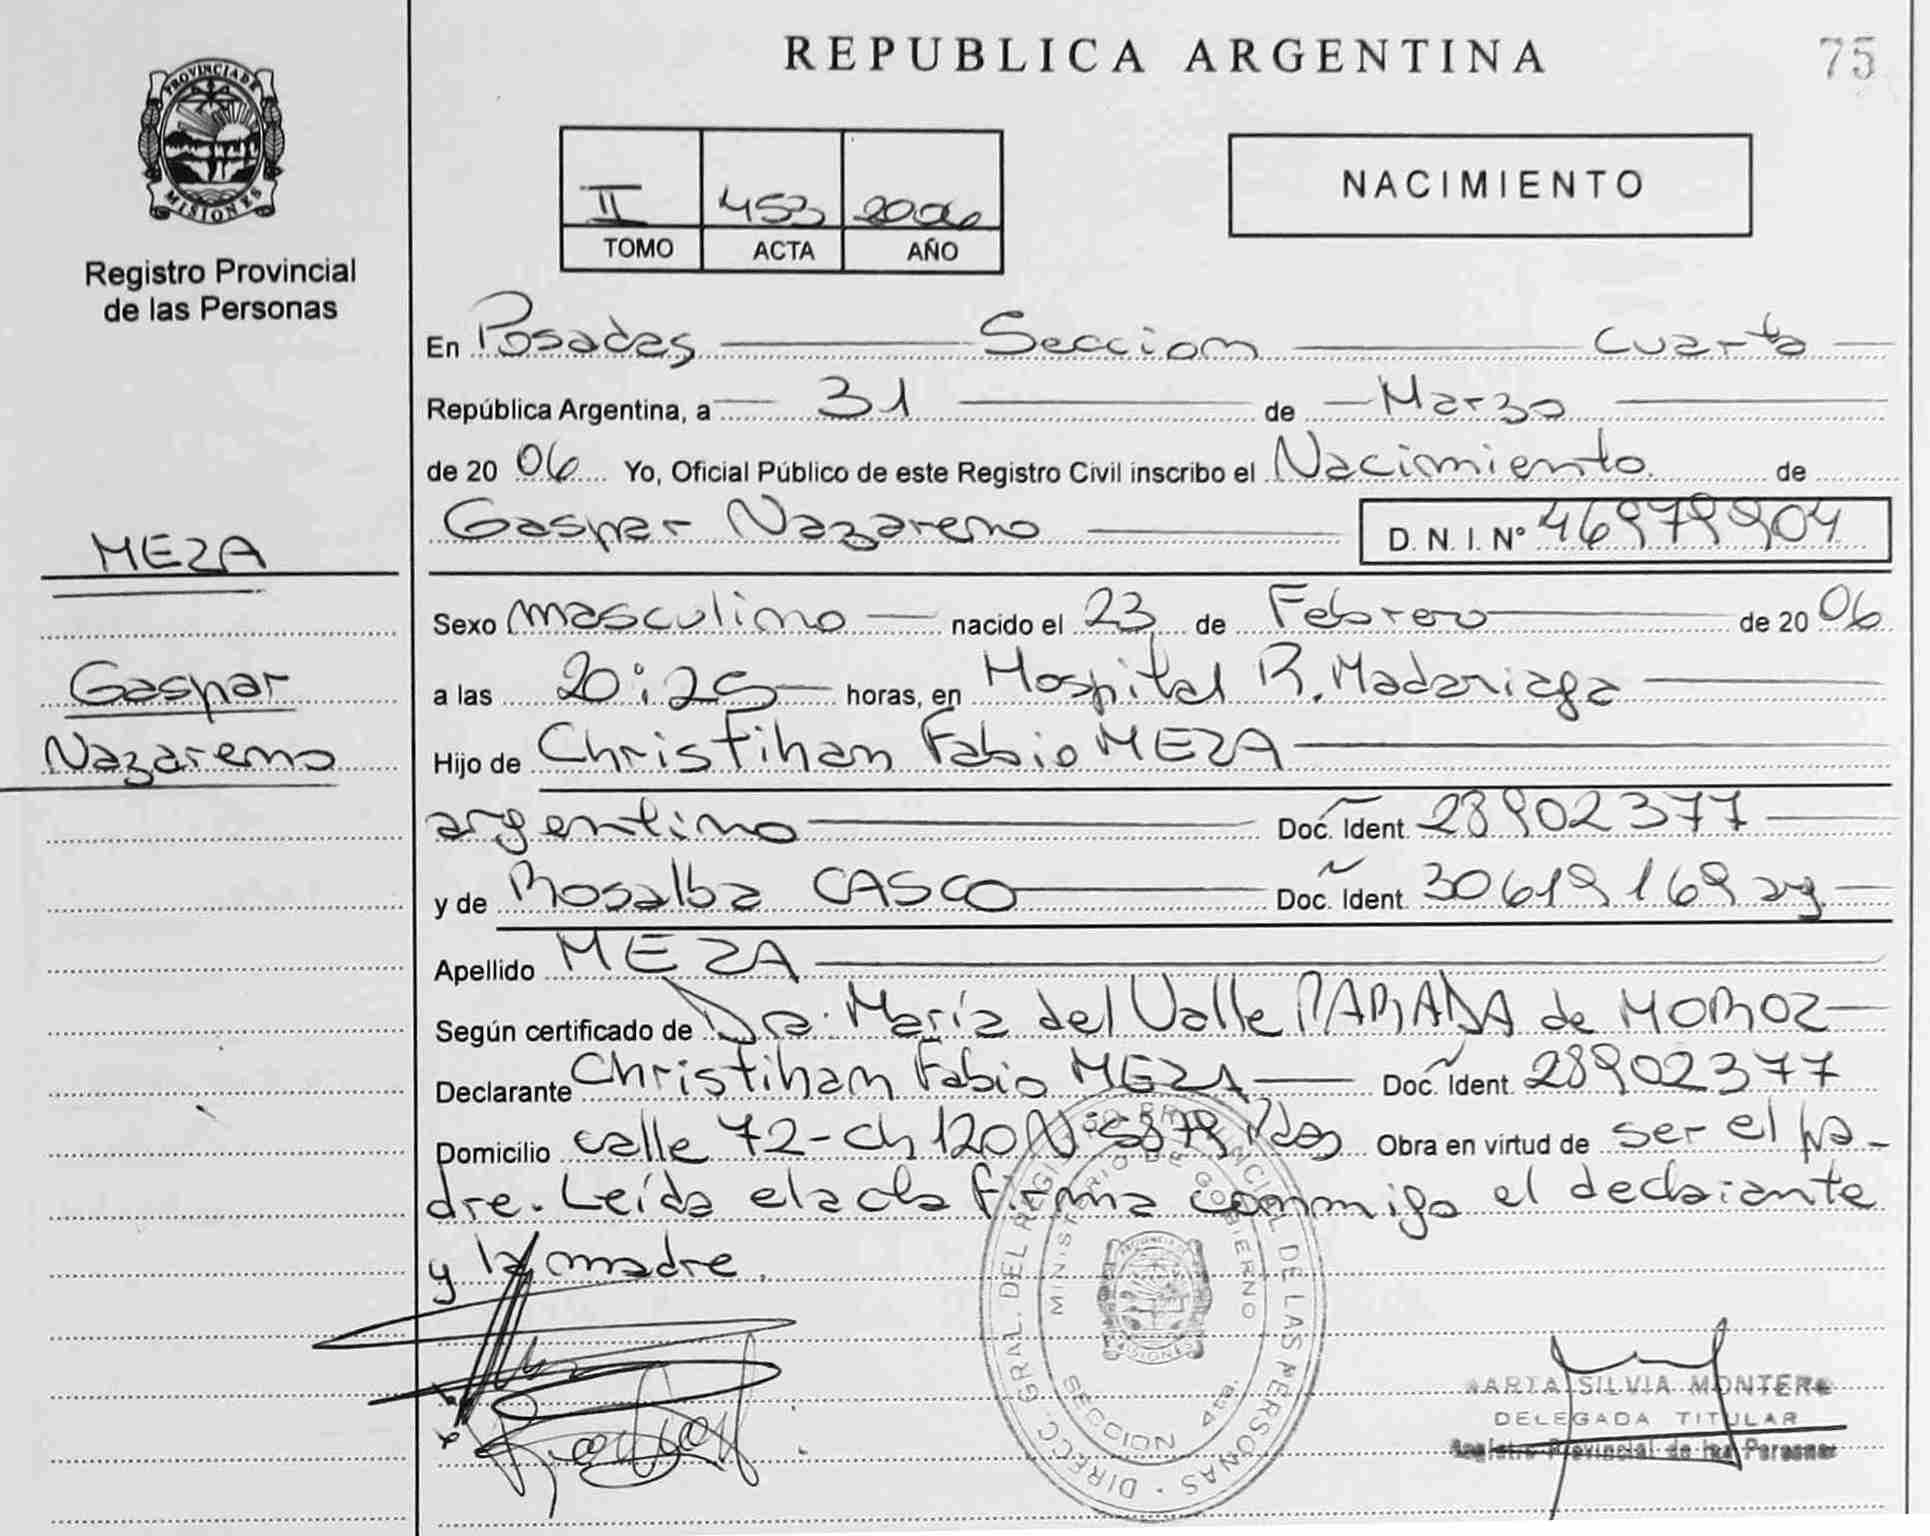 REPUBLICA ARGENTINA
75
PROVINCIA DE
MISIONES
Registro Provincial
de las Personas
II 453 2006
TOMO ACTA AÑO
NACIMIENTO
En Posadas Seccion cuarta
República Argentina, a 31 de Marzo
de 20 06 Yo, Oficial Público de este Registro Civil inscribo el Nacimiento. de
Gaspar Nazareno D. N. I. N° 46979904
MEZA
Gaspar
Nazareno
Sexo masculino nacido el 23 de Febrero de 20 06
a las 20:25 horas, en Hospital R. Madariaga
Hijo de Christihan Fabio MEZA
argentino Doc. Ident. 28902377
y de Rosalba CASCO Doc. Ident. 30619169 arg
Apellido MEZA
Según certificado de Dra. María del Valle PARADA de MOROZ
Declarante Christihan Fabio MEZA Doc. Ident. 28902377
Domicilio calle 72-ch 120 N° 5879 Pdas Obra en virtud de ser el pa-
dre. Leída el acta firma conmigo el declarante
y la madre.
DIRECC. GRAL. DEL REGISTRO PROVINCIAL DE LAS PERSONAS
MINISTERIO DE GOBIERNO
SECCION 4ta.
MISIONES
MARTA SILVIA MONTERO
DELEGADA TITULAR
Registro Provincial de las Personas